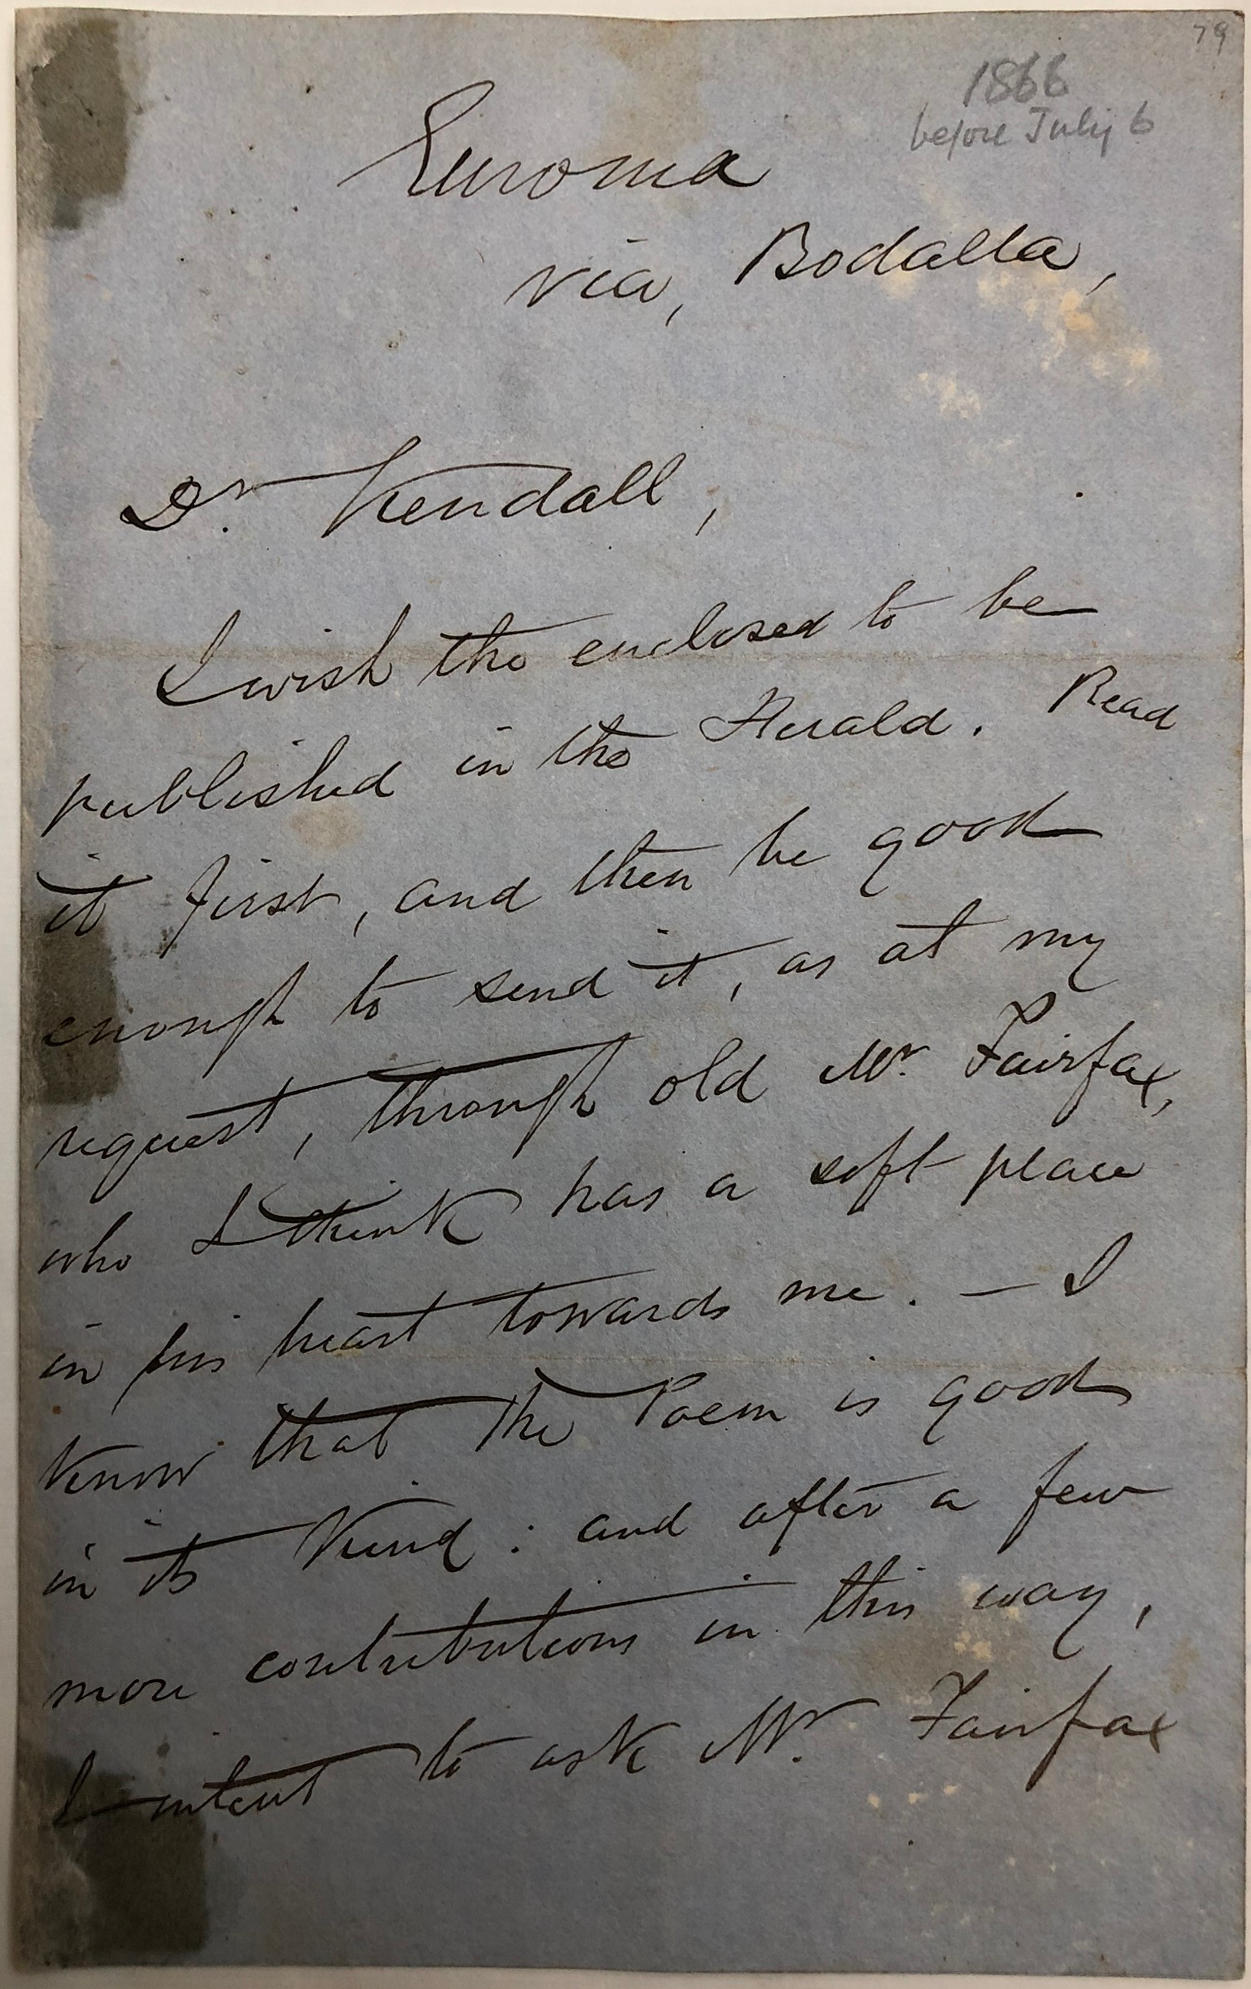 79
1866
before July 6
Euroma
via, Bodalla,
Dr. Kendall,
I wish the enclosed to be
published in the Herald. Read
it first, and then be good
enough to send it, as at my
request, through old Mr. Fairfax,
who I think has a soft place
in his heart towards me. — I
know that the Poem is good
in its kind : and after a few
more contributions in this way,
I intent to ask Mr. Fairfax